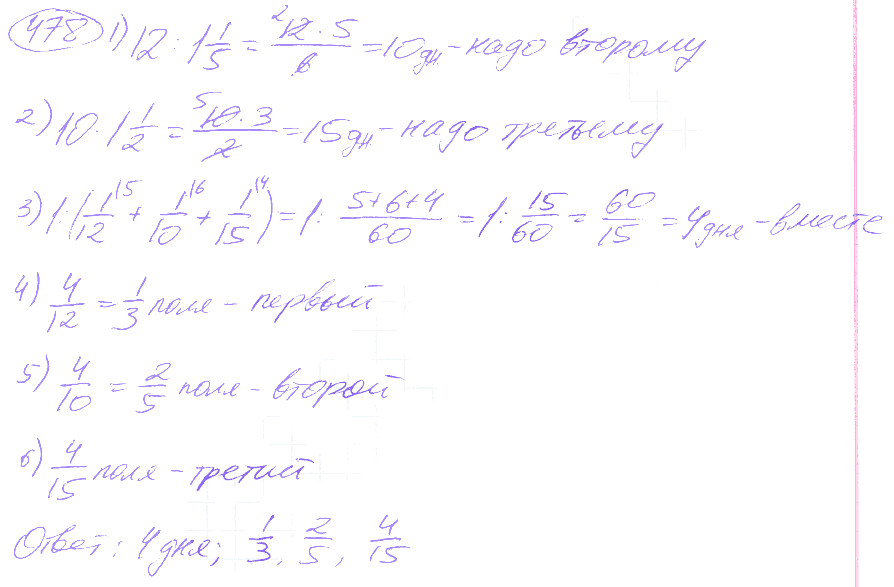 478 1) 12 : 1 1/5 = 12 · 5 / 6 = 10 дн - надо второму
2) 10 · 1 1/2 = 10 · 3 / 2 = 15 дн - надо третьему
3) 1 : (1/12 + 1/10 + 1/15) = 1 : 5+6+4 / 60 = 1 : 15/60 = 60/15 = 4 дня - вместе
4) 4/12 = 1/3 поля - первый
5) 4/10 = 2/5 поля - второй
6) 4/15 поля - третий
Ответ: 4 дня; 1/3, 2/5, 4/15